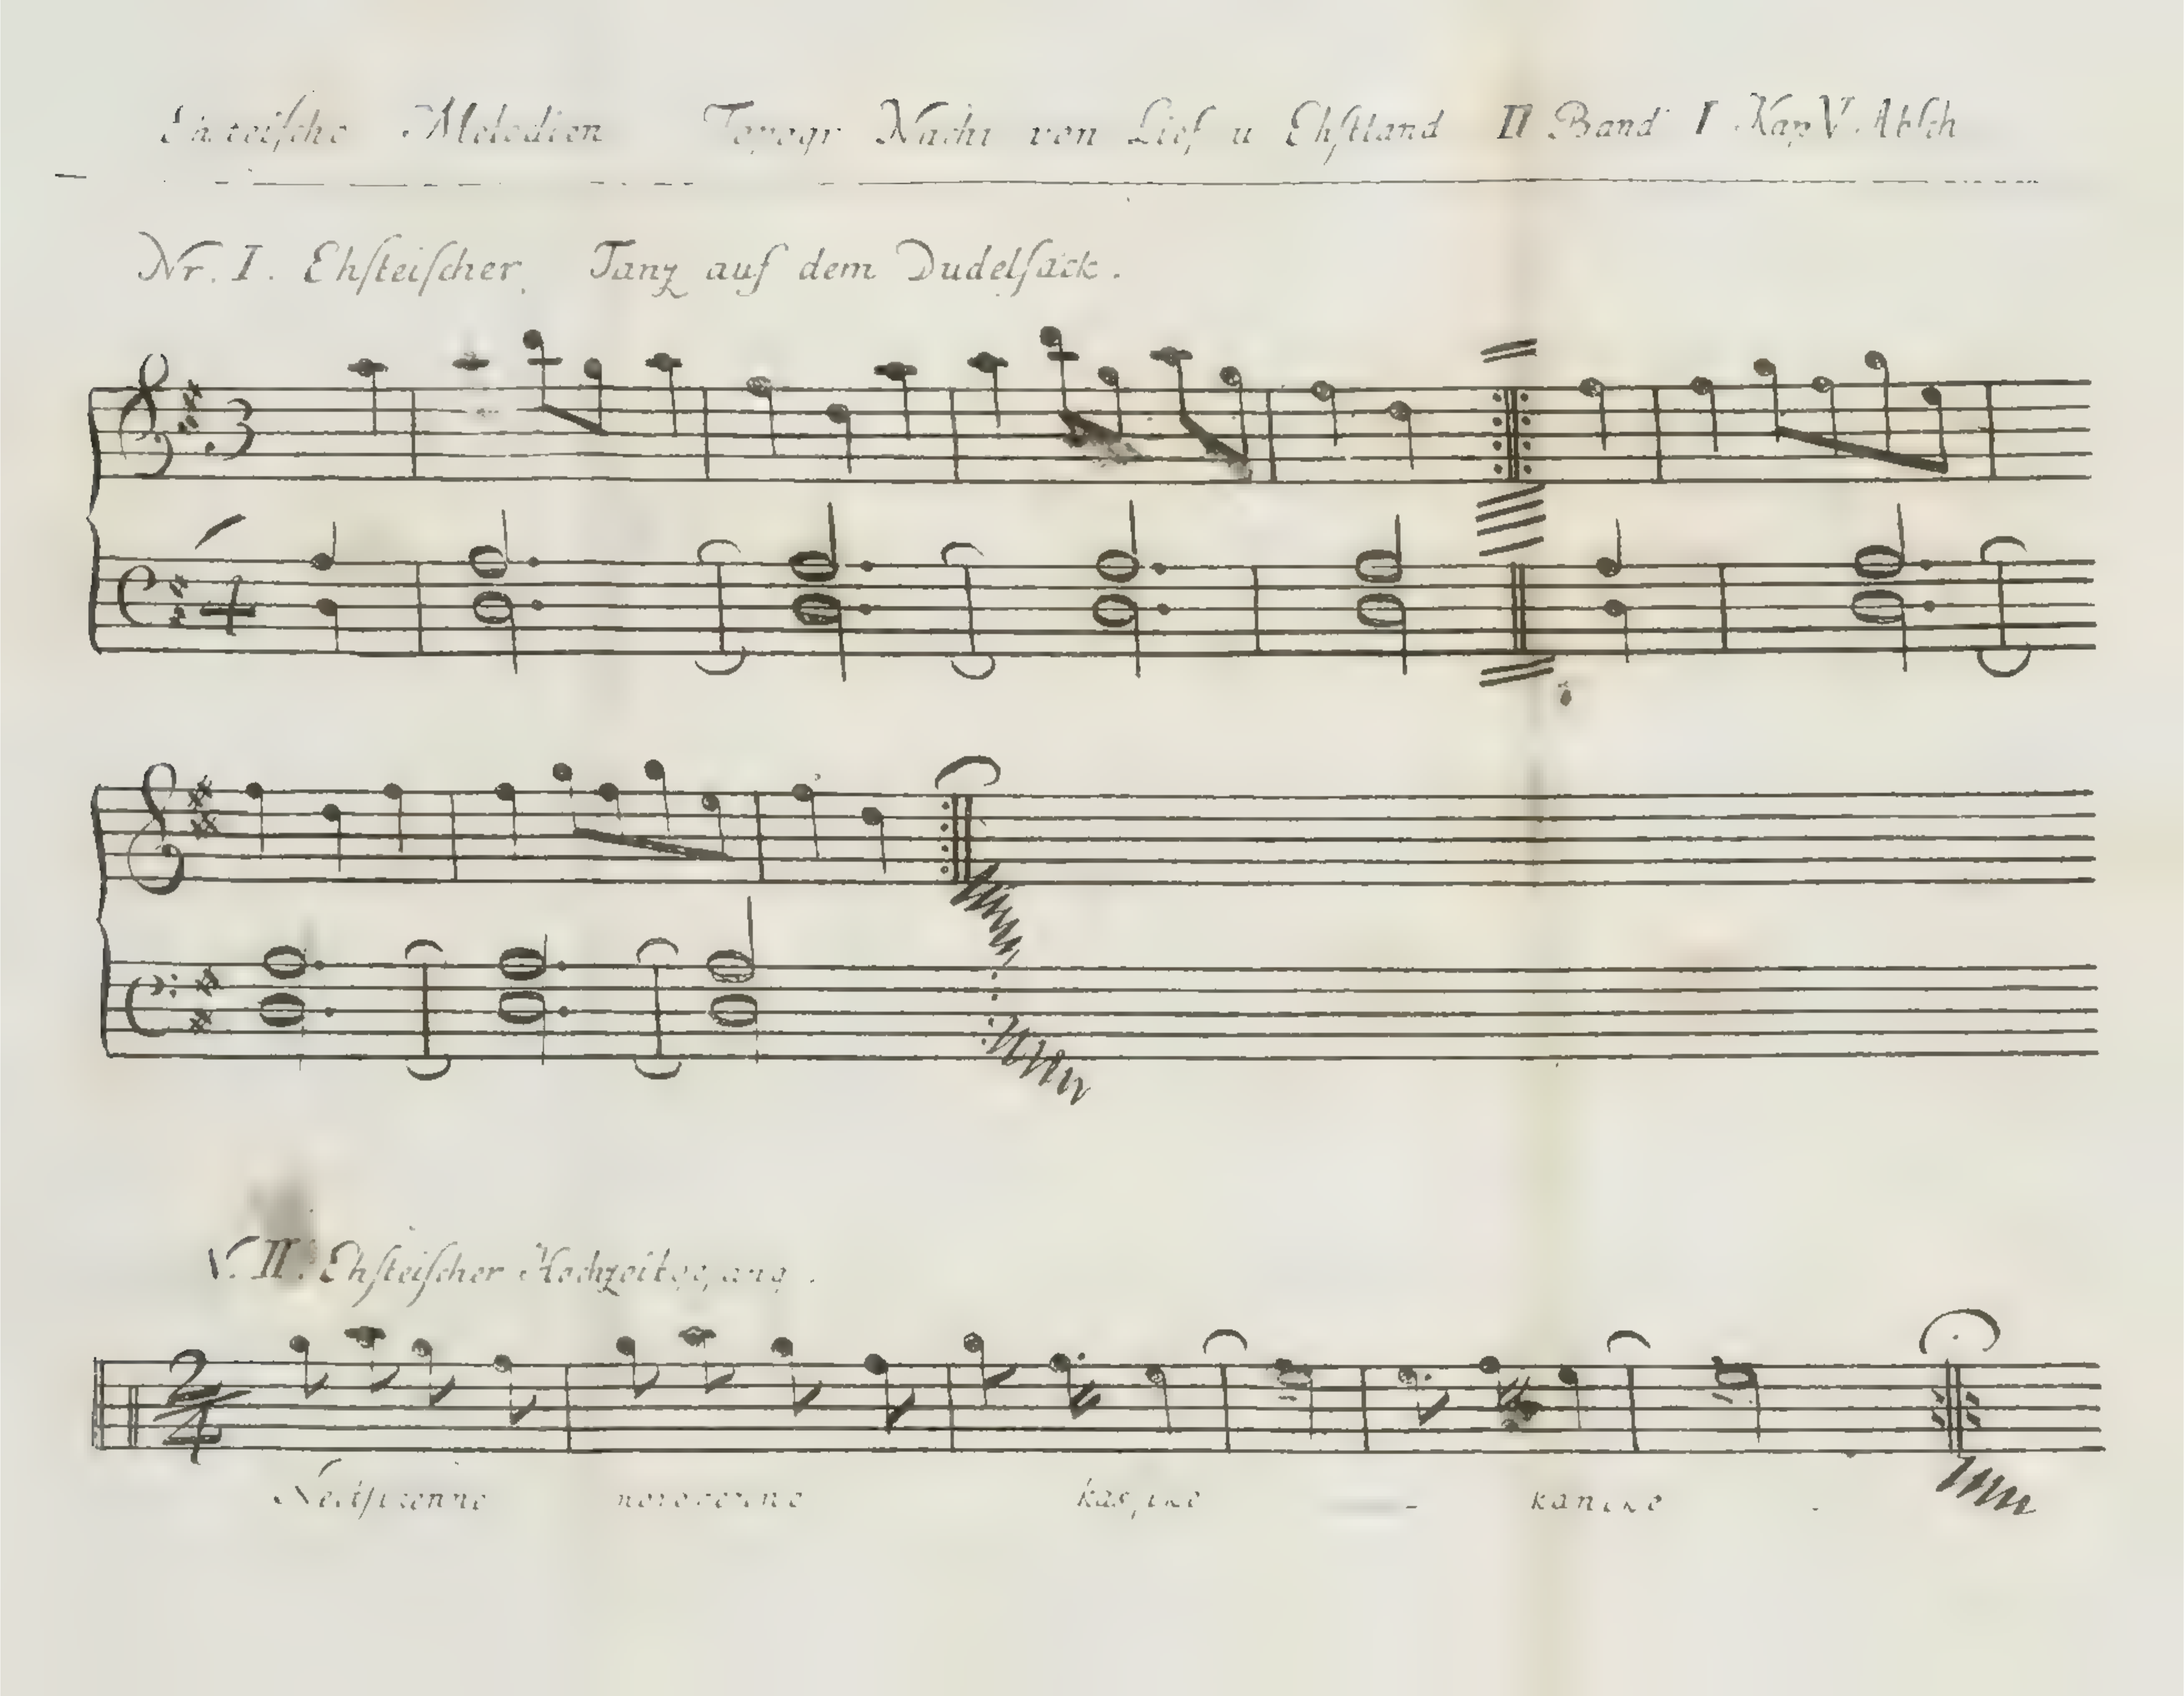 Ehsteische Melodien Topogr Nachr von Lief u Ehstland II Band I Kap V. Absch
Nr. I. Ehsteischer Tanz auf dem Dudelsack.
3
4
N. II. Ehsteischer Hochzeitgesang.
2
4
kaske - kaneke